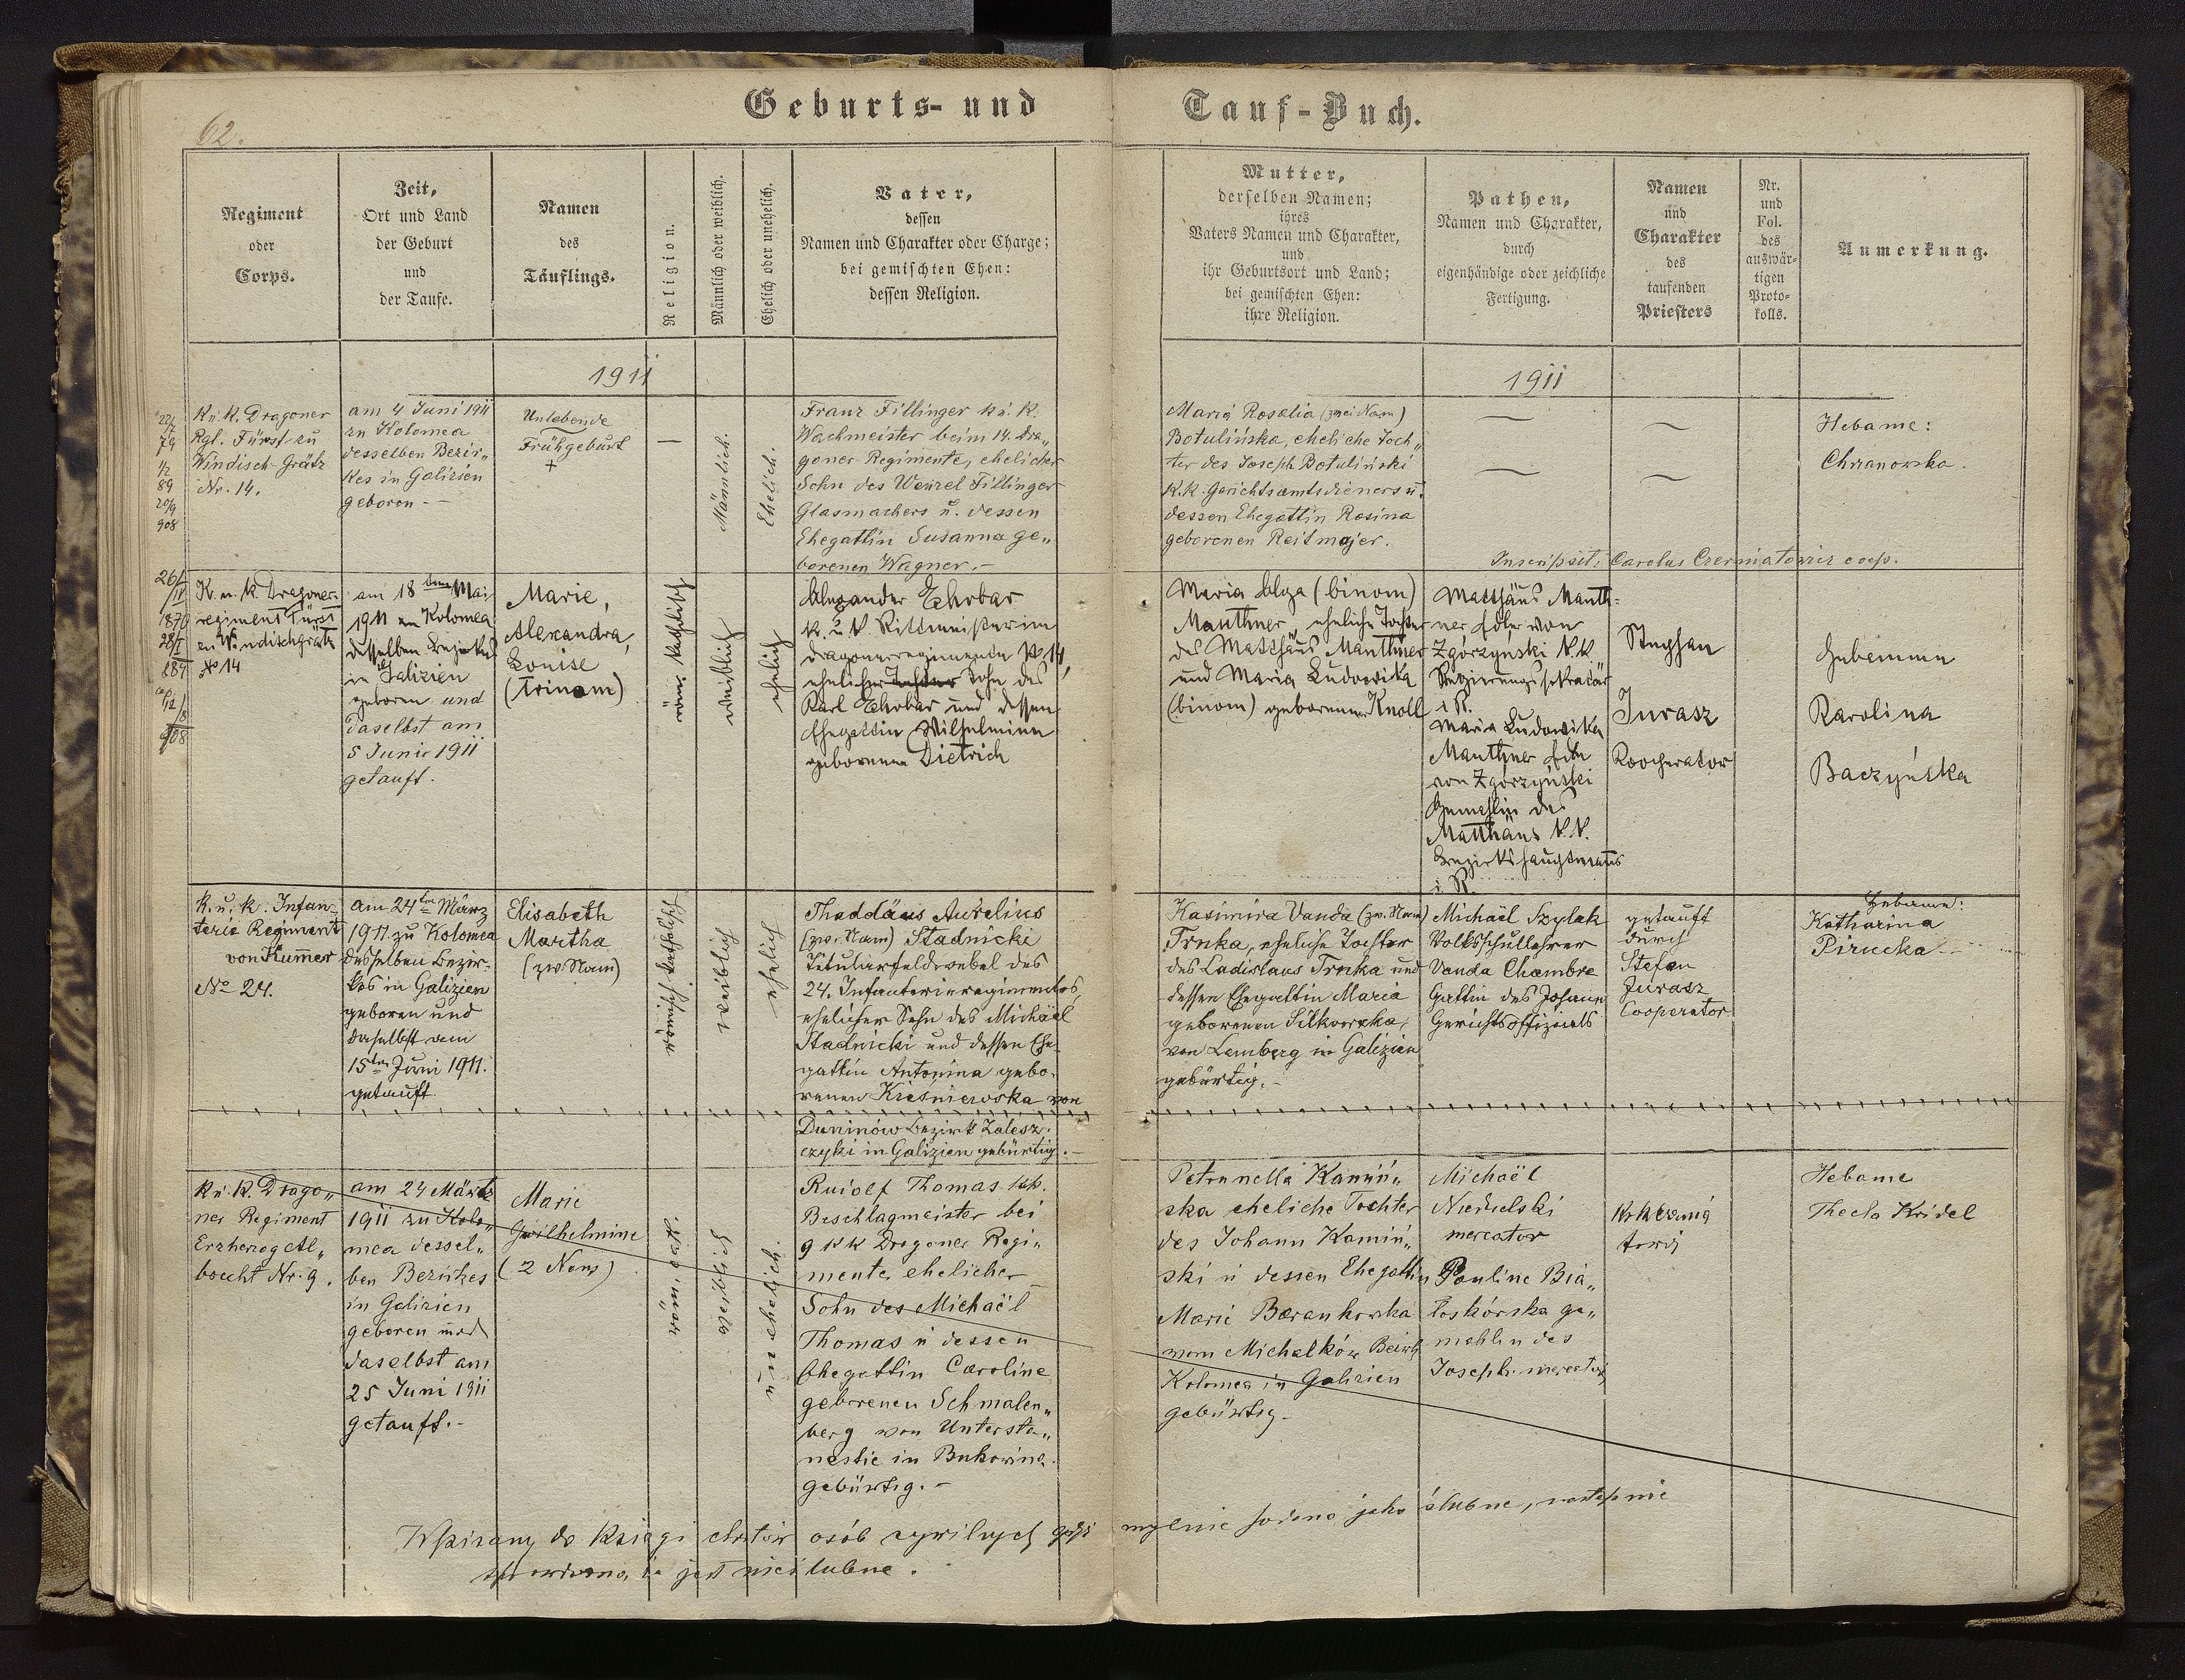 Geburts- und Tauf-Buch.
62.
Regiment
oder
Corps.
Zeit,
Ort und Land
der Geburt
und
der Taufe.
Namen
des
Täuflings.
Religion.
Männlich oder weiblich.
Ehelich oder unehelich.
Vater,
dessen
Namen und Charakter oder Charge;
bei gemischten Ehen:
dessen Religion.
Mutter,
derselben Namen;
ihres
Vaters Namen und Charakter,
und
ihr Geburtsort und Land;
bei gemischten Ehen:
ihre Religion.
Pathen,
Namen und Charakter,
durch
eigenhändige oder zeichliche
Fertigung.
Namen
und
Charakter
des
taufenden
Priesters
Nr.
und
Fol.
des
auswär-
tigen
Proto-
kolls.
Anmerkung.
1911
1911
22/7
79
1/2
89
20/9
908
K.u.K. Dragoner
Rgt. Fürst zu
Windisch-Grätz
Nr. 14.
am 4 Juni 1911
zu Kolomea
desselben Bezir„
kes in Galizien
geboren -
Unlebende
Frühgeburt
+
—
Männlich.
Ehelich.
Franz Fillinger k.u. K.
Wachmeister beim 14. Dra„
goner-Regimente, ehelicher
Sohn des Wenzel Fillinger
Glasmachers u. dessen
Ehegattin Susanna ge„
borenen Wagner.-
Maria Rosalia (zwei Nam)
Botulińska, eheliche Toch„
ter des Joseph Botuliński
K.K. Gerichtsamtsdieners u.
dessen Ehegattin Rosina
geborenen Reitmajer.
Hebame:
Chrzanowska.
Inscripsit: Carolus Czerniatowicz coop.
26/IV
1870
28/I
887
12/8
908
K. u. K. Dragoner-
regiment Fürst
zu Windischgrätz
No 14
am 18ten Mai
1911 zu Kolomea
desselben Bezirkes
in Galizien
geboren und
daselbst am
5 Junie 1911
getauft.
Marie,
Alexandra,
Louise
(trinom)
röm. katholisch
weiblich
ehelich
Alexander Ehrbar
k. u. k. Rittmeister im
Dragonerregimente No 14,
ehelicher Tochter Sohn des
Karl Ehrbar und dessen
Ehegattin Wilhelmine
geborenen Dietrich
Maria Olga (binom)
Mauthner, eheliche Tochter
des Matthäus Mauthner
und Maria Ludowika
(binom) geborenen Knoll
Matthäus Mauth-
ner Edler von
Zgórzyński k.k.
Regierungssekretär
i R.
Maria Ludovika
Mauthner Edle
von Zgórzyński
Gemahlin des
Matthäus k.k.
Bezirkshauptmanns
i R.
Stephan
Jurasz
Kooperator
Hebamme
Karolina
Baczyńska
K. u. k. Infan-
terie Regiment
von Kummer
No 24.
am 24ten März
1911. zu Kolomea
desselben Bezir-
kes in Galizien
geboren und
daselbst am
15ten Juni 1911.
getauft.
Elisabeth
Martha
(zw. Nam)
römisch katholisch
weiblich
ehelich
Thaddäus Aurelius
(zw. Nam) Stadnicki
Titularfeldwebel des
24. Infanterieregimentes,
ehelicher Sohn des Michaël
Stadnicki und dessen Ehe-
gattin Antonina gebo-
renen Kieśniewska von
Duninów Bezirk Zalesz-
czyki in Galizien gebürtig.-
Kasimira Vanda (zw. Nam)
Trnka, eheliche Tochter
des Ladislaus Trnka und
dessen Ehegattin Maria
geborenen Silkowska,
von Lemberg in Galizien
gebürtig.-
Michaël Szylak
Volksschullehrer
Vanda Chambre
Gattin des Johann
Gerichtsoffizials
getauft
durch
Stefan
Jurasz
Cooperator
Hebame:
Katharina
Pirucka -
K.u.K. Drago„
ner Regiment
Erzherzog Al„
brecht Nr. 9.
am 24 März
1911 zu Kolo„
mea dessel„
ben Bezirkes
in Galizien
geboren und
daselbst am
25 Juni 1911
getauft.-
Marie
Guilhelmine
(2 Nam)
röm. kat.
weiblich
unehelich.
Rudolf Thomas
Beschlagmeister bei
9 K K Dragoner Regi„
mente, ehelicher
Sohn des Michaël
Thomas u dessen
Ehegattin Caroline
geborenen Schmalen„
berg von Untersta„
nestie in Bukowina
gebürtig.-
Petronella Kamiń„
ska eheliche Tochter
des Johann Kamiń„
ski u dessen Ehegattin
Marie Barankowska
vom Michalków Bezirk
Kolomea in Galizien
gebürtig-
Michaël
Niedzielski
mercator
Pauline Bia„
łoskórska ge„
mahlin des
Joseph mercator
Hebame
Thecla Kridel
Wpisany do Księgi chrztów osób cywilnych gdyż mylnie podano jako ślubne, następnie
stwierdzono, że jest nieślubne.